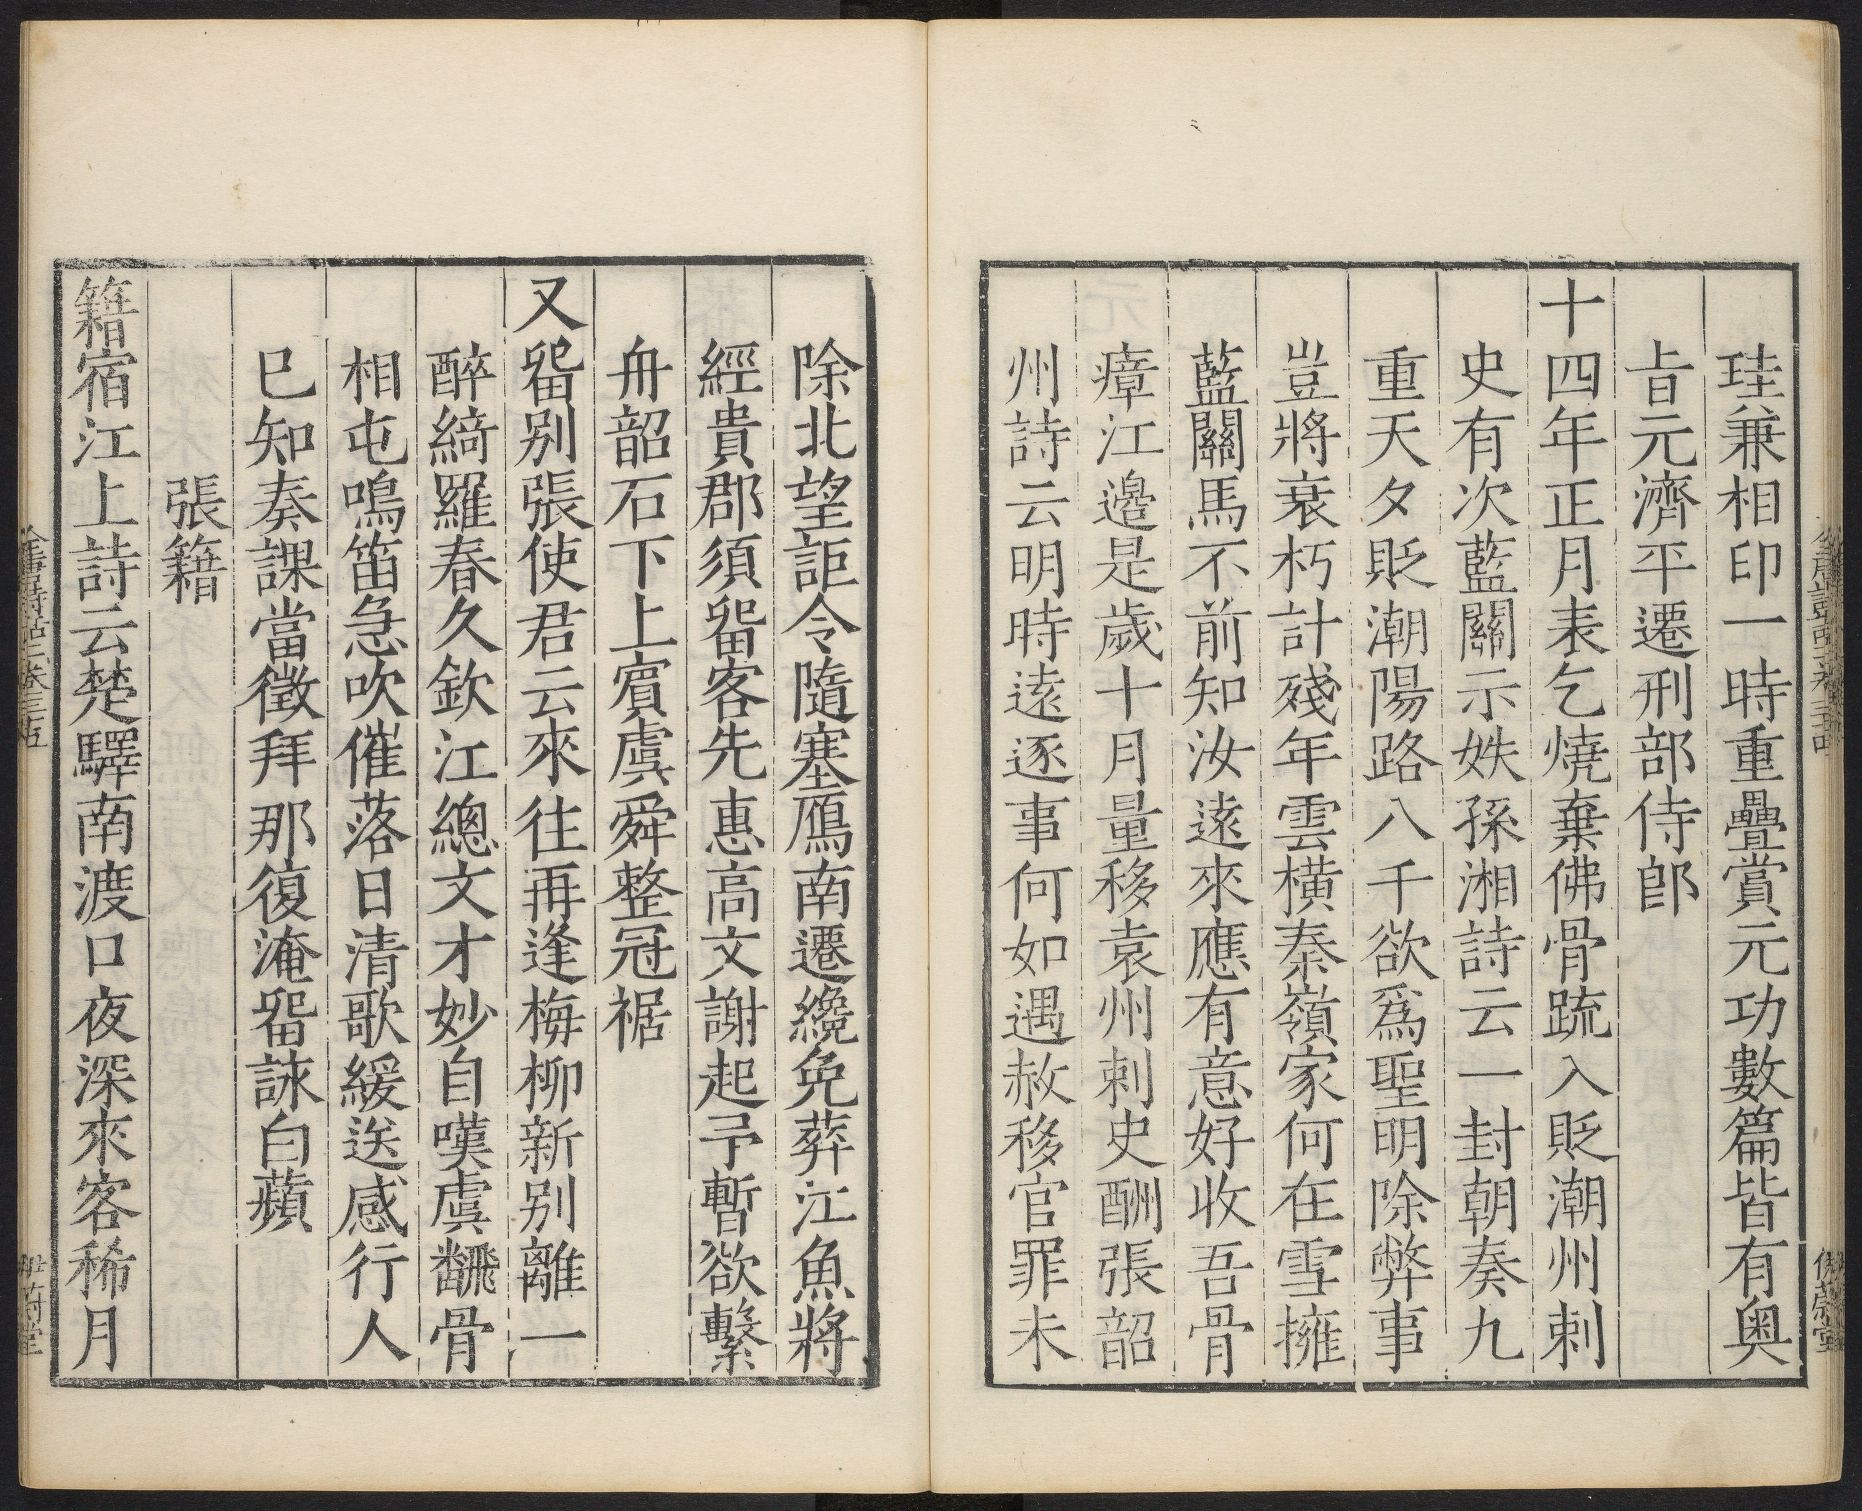 珪兼相印一時重疊賞元功數篇皆有奥
㫖元濟平遷刑部侍郎
十四年正月表乞燒棄佛骨䟽入貶潮州刺
史有次藍關示姪孫湘詩云一封朝奏九
重天夕貶潮陽路八千欲爲聖明除弊事
豈將衰朽計殘年雲橫秦嶺家何在雪擁
藍關馬不前知汝逺來應有意好收吾骨
瘴江邉是歲十月量移袁州刺史酬張韶
州詩云明時逺逐事何如遇赦移官罪未
除北望詎令隨塞鴈南遷纔免葬江魚將
經貴郡須留客先惠高文謝起予暫欲繫
舟韶石下上賓虞舜整冠裾
又留别張使君云來往再逢梅柳新别離一
醉綺羅春久欽江總文才妙自嘆虞翻骨
相屯鳴笛急吹催落日清歌緩送感行人
已知奏課當徵拜那復淹留詠白蘋
張籍
籍宿江上詩云楚驛南渡口夜深來客稀月